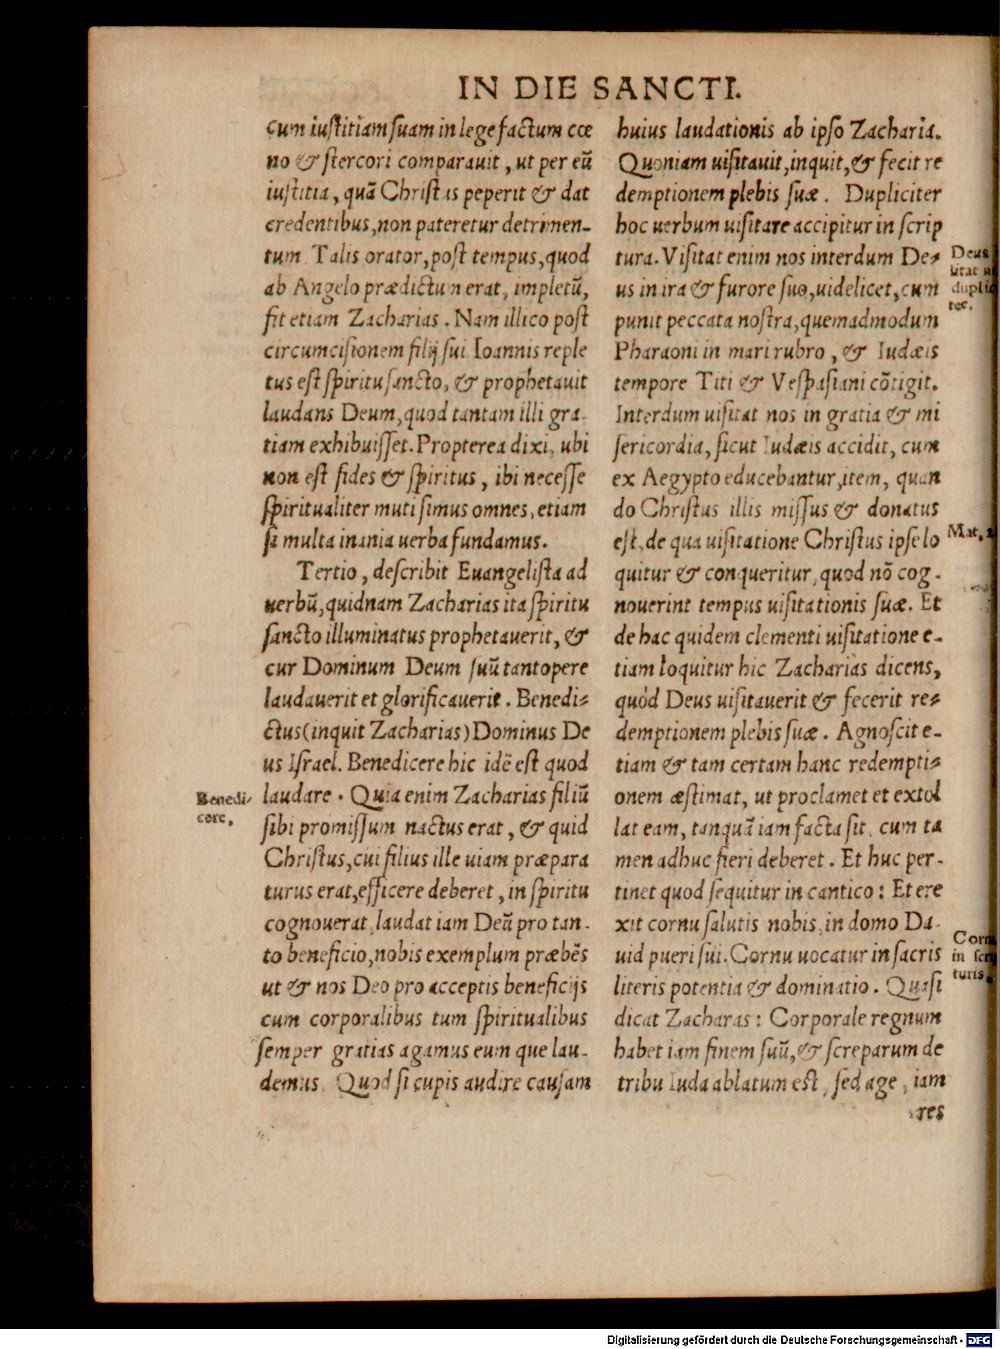 IN DIE SANCTI.
cum iuſtitiam ſuam in lege factum cœ
no & ſtercori comparauit, ut per eũ
iuſtitia, quã Chriſtus peperit & dat
credentibus, non pateretur detrimen-
tum Talis orator, poſt tempus, quod
ab Angelo prædictum erat, impletũ,
fit etiam Zacharias. Nam illico poſt
circumciſionem filij ſui Ioannis reple
tus eſt ſpiritu ſancto, & prophetauit
laudans Deum, quod tantam illi gra
tiam exhibuiſſet. Propterea dixi, ubi
non eſt fides & ſpiritus, ibi neceſſe
ſpiritualiter muti ſimus omnes, etiam
ſi multa inania uerba fundamus.
Tertio, deſcribit Euangeliſta ad
uerbũ, quidnam Zacharias ita ſpiritu
ſancto illuminatus prophetauerit, &
cur Dominum Deum ſuũ tantopere
laudauerit et glorificauerit. Benedi-
ctus (inquit Zacharias) Dominus De
us Iſrael. Benedicere hic idẽ eſt quod
Benedi-
cere.
laudare. Quia enim Zacharias filiũ
ſibi promiſſum nactus erat, & quid
Chriſtus, cui filius ille uiam præpara
turus erat, efficere deberet, in ſpiritu
cognouerat, laudat iam Deũ pro tan-
to beneficio, nobis exemplum præbẽs
ut & nos Deo pro acceptis beneficijs
cum corporalibus tum ſpiritualibus
ſemper gratias agamus eum que lau-
demus. Quod ſi cupis audire cauſam
huius laudationis ab ipſo Zacharia.
Quoniam uiſitauit, inquit, & fecit re
demptionem plebis ſuæ. Dupliciter
hoc uerbum uiſitare accipitur in ſcrip
tura. Viſitat enim nos interdum De-
us in ira & furore ſuo, uidelicet, cum
punit peccata noſtra, quemadmodum
Pharaoni in mari rubro, & Iudæis
tempore Titi & Veſpaſiani cõtigit.
Interdum uiſitat nos in gratia & mi
ſericordia, ſicut Iudæis accidit, cum
ex Aegypto educebantur, item, quan
do Chriſtus illis miſſus & donatus
eſt, de qua uiſitatione Chriſtus ipſe lo
quitur & conqueritur, quod nõ cog-
nouerint tempus uiſitationis ſuæ. Et
de hac quidem clementi uiſitatione e-
tiam loquitur hic Zacharias dicens,
quòd Deus uiſitauerit & fecerit re-
demptionem plebis ſuæ. Agnoſcit e-
tiam & tam certam hanc redempti-
onem æſtimat, ut proclamet et extol
lat eam, tanquã iam facta ſit, cum ta
men adhuc fieri deberet. Et huc per-
tinet quod ſequitur in cantico: Et ere
xit cornu ſalutis nobis, in domo Da-
uid pueri ſui. Cornu uocatur in ſacris
literis potentia & dominatio. Quaſi
dicat Zacharas: Corporale regnum
habet iam finem ſuũ, & ſcreparum de
tribu Iuda ablatum eſt, ſed age, iam
res
Deus
duplici
ter.
Mat,
Corn
in ſcri
turis.
Digitalisierung gefördert durch die Deutsche Forschungsgemeinschaft - DFG